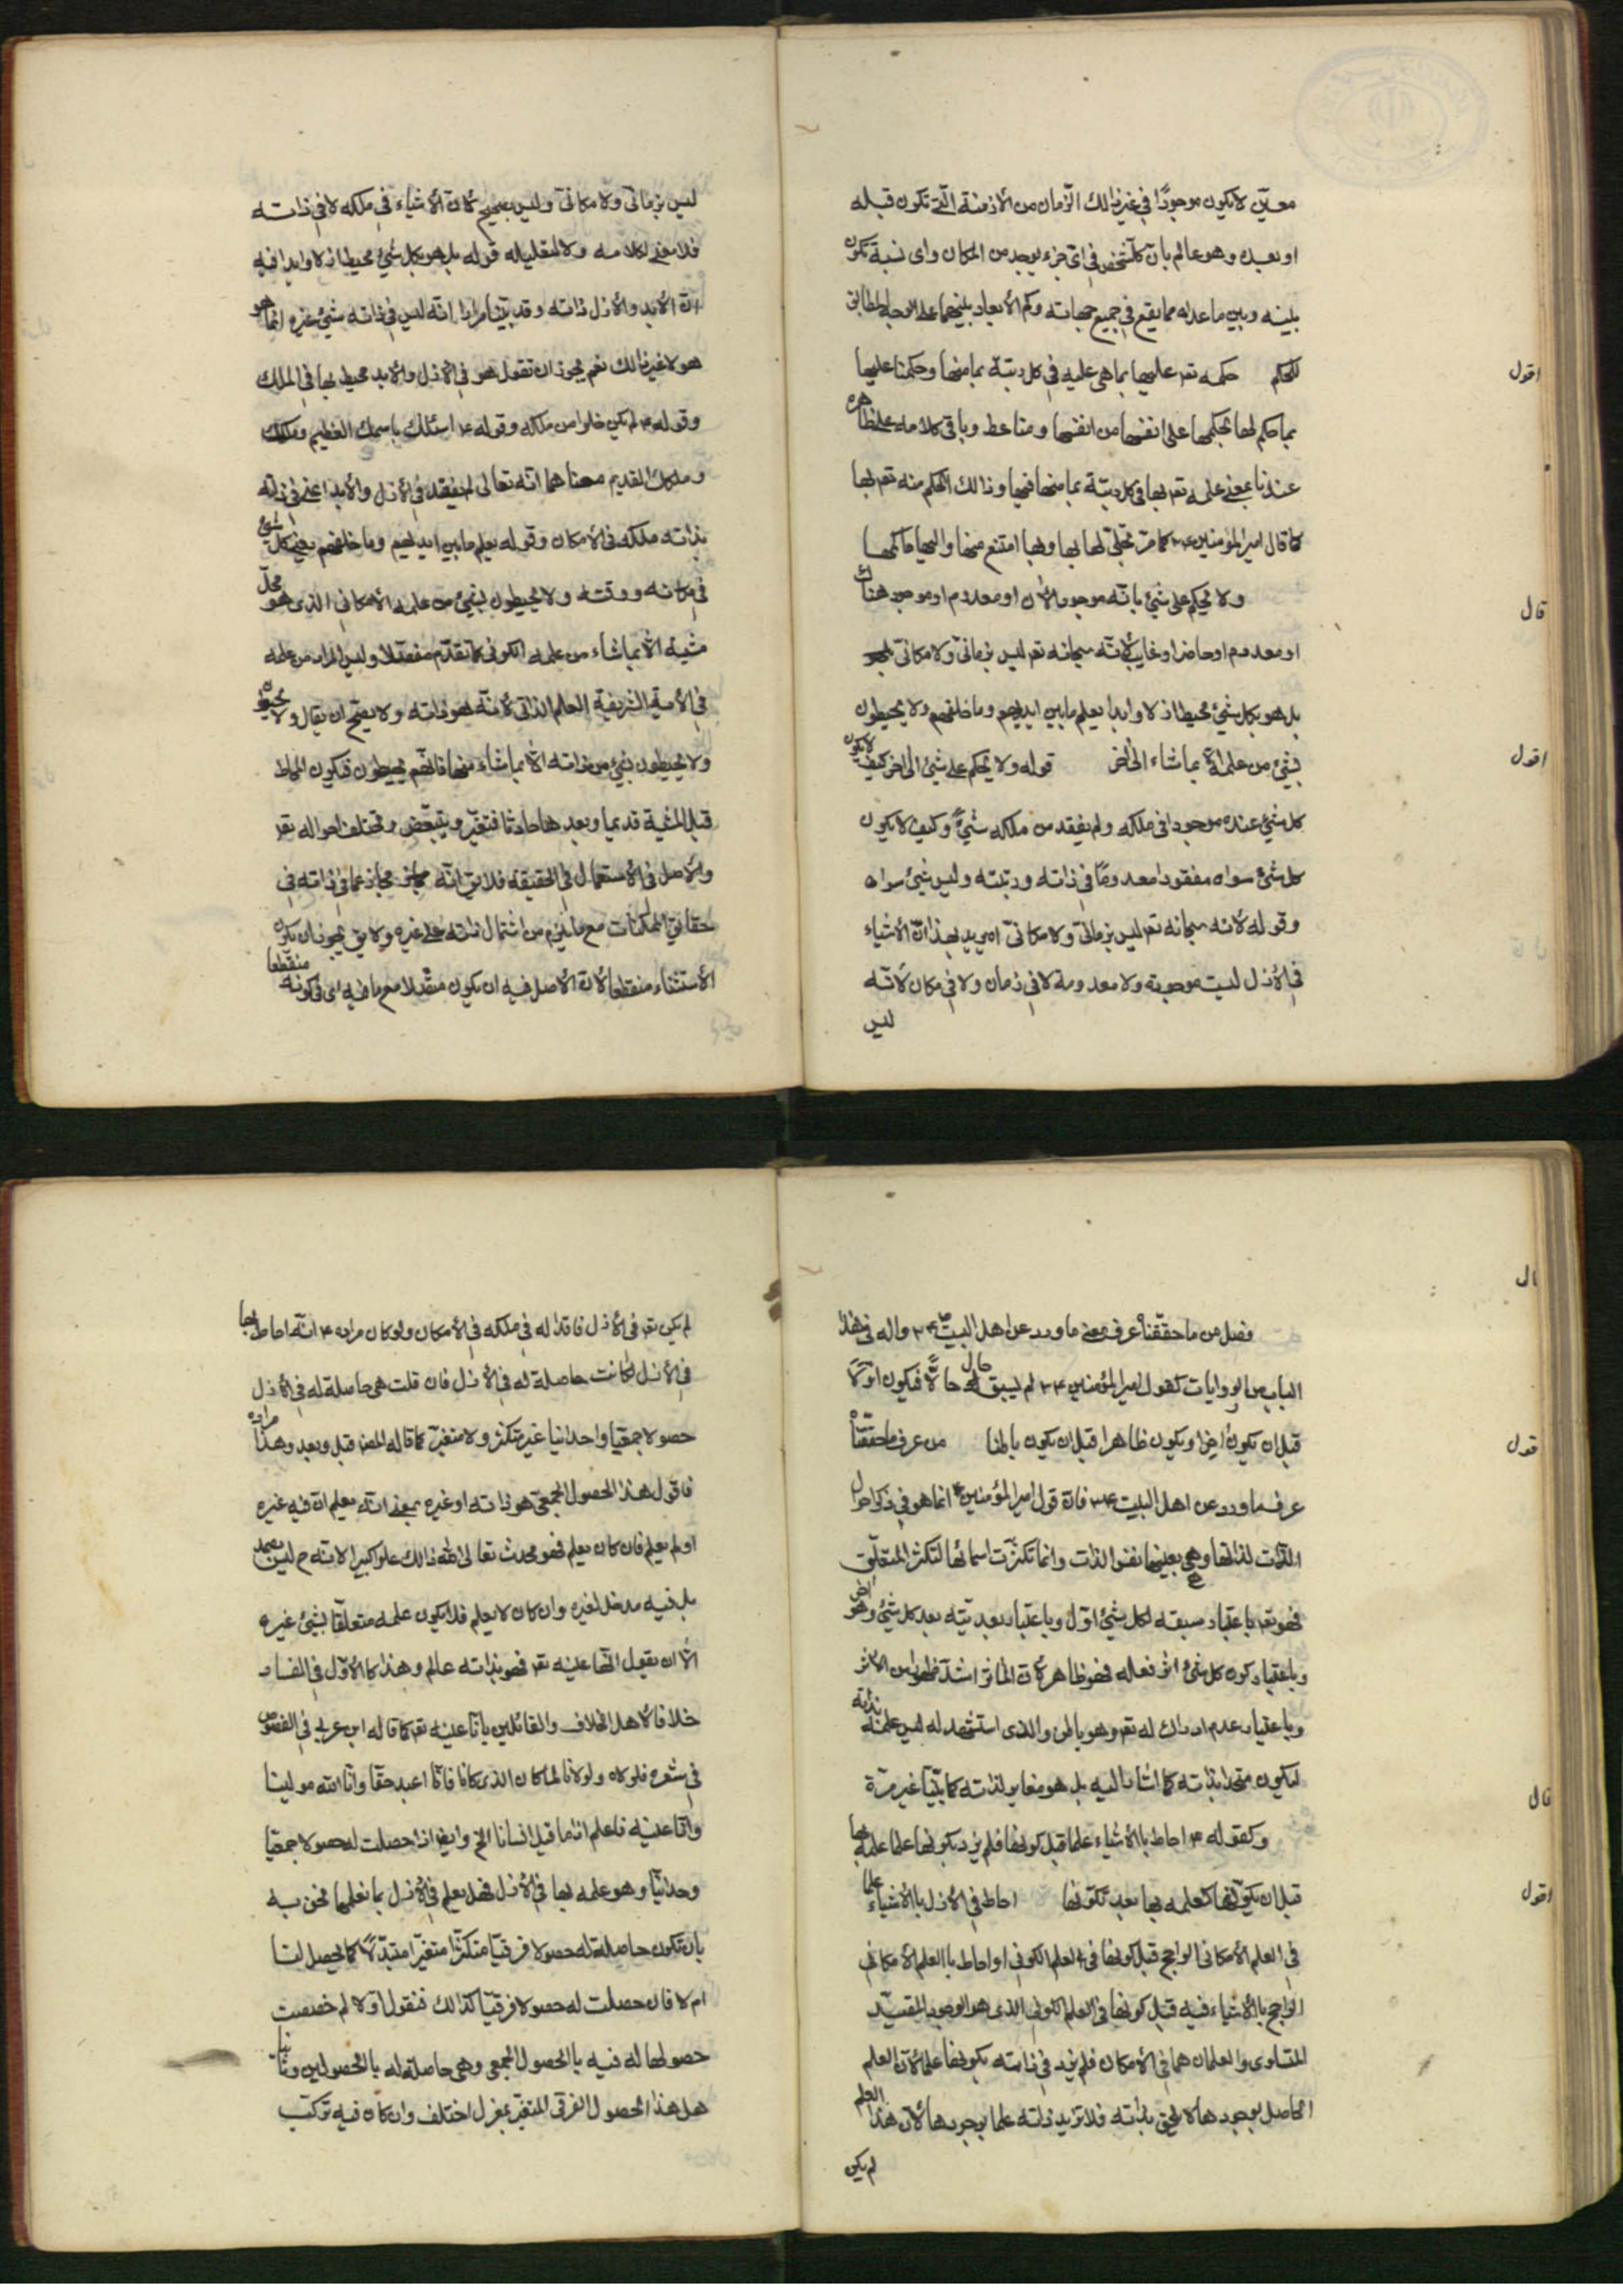 معين لا يكون موجودًا في غير ذالك الزّمان من الأزمنة الّتي تكون قبله
او بعده وهو عالم بانّ كل شخص في اي جزء يوجد من المكان واي نسبة تكون
بينه وبين ما عداه مما يقع في جميع جهاته وكم الأبعاد بينهما على الوجه المطابق
اقول
للحكم حكمه تعـ عليها بما هي عليه في كل رتبة بما منها وحكمنا عليها
بما حكم لها بحكمها على انفسها من انفسها وباقي كلامه على ظاهره
عندنا بمعنى علمه تعـ بها في كل رتبة بما منها فيها وذالك الحكم منه تعـ لها
كما قال امير المؤمنين ع كما مرّ تجلّى لها بها وبها امتنع منها واليها حاكمها
قال
ولا يحكم على شيئ بانّه موجود الأن او معدوم او موجود هناك
او معدوم او حاضر او غايب لأنّه سبحانه تعـ ليس بزماني ولا مكاني
بل هو بكل شيئ محيط ازلا وابدا يعلم ما بين ايديهم وما خلفهم ولا يحيطون
اقول
بشيئ من علمه الّا بما شاء الى أخر قوله ولا يحكم على شيئ الى اخر كيف لا يكون
كل شيئ عنده موجودا في ملكه ولم يفقد من ملكه شيئ وكيف لا يكون
كل شيئ سواه مفقودا معدومًا في ذاته ورتبته وليس شيئ سواه
وقوله لأنه سبحانه تعـ ليس بزماني ولا مكاني اه يريد بهذا انّ الأشياء
في الأزل ليست موجودة ولا معدومة لا في زمان ولا في مكان لأنّه
ليس
ليس بزماني ولا مكاني وليس بصحيح لأنّ الأشياء في ملكه لا في ذاته
فلا معنى لكلامه ولا لتعليله قوله بل هو بكل شيئ محيط ازلا وابدا فيه
انّ الأبد والأزل ذاته وقد بيّنا مرارا انّه ليس في ذاته شيئ غيره انّما هو
هو لا غير ذالك نعم يجوز ان تقول هو في الأزل والأبد محيط بها في الملك
وقوله ع لم يكن خلوا من ملكه وقوله ع اسئلك باسمك العظيم وملكك
وملكك القديم معناهما انّه تعالى لم يفقد في الأزل والأبد اعني في ذاته
بذاته ملكه في الأمكان وقوله يعلم ما بين ايديهم وما خلفهم يعني كل شيئ
في مكانه ووقته ولا يحيطون بشيئ من علمه الأمكاني الذي هو محلّ
مشيّه الّا بما شاء من علمه الكوني كما تقدّم مفصّلا وليس المراد من علمه
في الأية الشريفة العلم الذاتي لأنّه هو ذاته ولا يصح ان يقال ولا يحيطو
ولا يحيطون بشيئ من ذاته الّا بما شاء منها فانّهم يحيطون فيكون المحاط
قبل المشية قديما وبعدها حادثا فيتغيّر ويتبعّض وتختلف احواله تعـ
والأصل في الأستعمال في الحقيقة فلا يق انّه مجاز عما في ذاته في
حقائق الممكنات مع ما يلزم من اشتمال ذاته على غيره ولا يق يجوز ان يكون
الأستثناء منقطعا لأنّ الأصل فيه ان يكون متّصلا مع ما فيه اي في كونه منقطعا
قال
فصل من ما حققناه عرف معنى ما ورد عن اهل البيت ص ع واله في هذا
الباب من الروايات كقول امير المؤمنين ع لم يسبق له حال حالًا فيكون اوّلًا
اقول
قبل ان يكون أخرا ويكون ظاهرا قبل ان يكون باطنا من عرف ما حققنا
عرف ما ورد عن اهل البيت ع فانّ قول امير المؤمنين ع انما هو في ذكر احوال
الذّات لذاتها وهي بعينها نفس الذات وانما تكثّرت اسمائها لتكثر المتعلّق
فهو تعـ باعتبار سبقه لكل شيئ اوّل وباعتبار بعديّته بعد كل شيئ وهو اخر
وباعتبار كون كل شيئ اثر فعاله فهو ظاهر لأنّ المؤثر اشدّ ظهورا من الأثر
وباعتبار عدم ادراك له تعـ وهو باطن والذي استشهد له ليس علمه بذاته
ليكون متحدا بذاته كما اشار اليه بل هو مغاير لذاته كما بيّنّا غير مرّة
قال
وكقوله ع احاط بالأشياء علما قبل كونها فلم يزدد بكونها علما علمه بها
اقول
قبل ان يكوّنها كعلمه بها بعد تكوّنها احاط في الأزل بالأشياء علما
في العلم الأمكاني الراجح قبل كونها في العلم الكوني او احاط بالعلم الأمكاني
الراجح بالأشياء فيه قبل كونها في العلم الكوني الذي هو الوجود المقيّد
المتساوي والعلمان هما في الأمكان فلم يزد في ذاته بكونها علما لأنّ العلم
الحاصل بوجودها لا يلحق بذاته فلا تزيد ذاته علما بوجودها لأنّ هذا العلم
لم يكن
لم يكن تعـ في الأزل فاقدا له في ملكه في الأمكان ولو كان مراده ع انّه احاط بها
في الأزل لكانت حاصلة له في الأزل فان قلت هي حاصلة له في الأزل
حصولا جمعيا واحدانيا غير متكثر ولا متغيّر كما قاله المصـ قبل وبعد وهذا مراده
فاقول هذا الحصول الجمعي هو ذاته او غيره بمعنى انّه يعلم انّ فيه غيره
او لم يعلم فان كان يعلم فهو محدث تعالى الله ذالك علوا كبيرا لانّه ح ليس بصمد
بل فيه مدخل لغيره وان كان لا يعلم فلا يكون علمه متعلّقا بشيئ غيره
الّا ان يقول انّها عينه تعـ فهو بذاته عالم وهذا كالأوّل في الفساد
خلافا لأهل الخلاف والقائلين بانّا عينه تعـ كما قاله ابن عربي في الفصوص
في شعره فلولاه ولولانا لما كان الذي كانا فانّا اعبد حقا وانّا الله مولينا
وانّا عينه فاعلم اذا ما قيل انسانا الخ وايضا اذا حصلت له حصولا جمعيا
وحدانيّا وهو علمه بها في الأزل فهل يعلم في الأزل بما نعلمها نحن به
بان تكون حاصلة له حصولا فرقيّا متكثّرا متغيّرا متبدّلًا كما يحصل لنا
ام لا فان حصلت له حصولا فرقيّا كذالك فنقول اوّلا لم خصصت
حصولها له فيه بالحصول الجمعي وهي حاصلة له بالحصولين وثانيا
هل هذا الحصول الفرقي المتغيّر بمغزل اختلف وان كان فيه تركّب